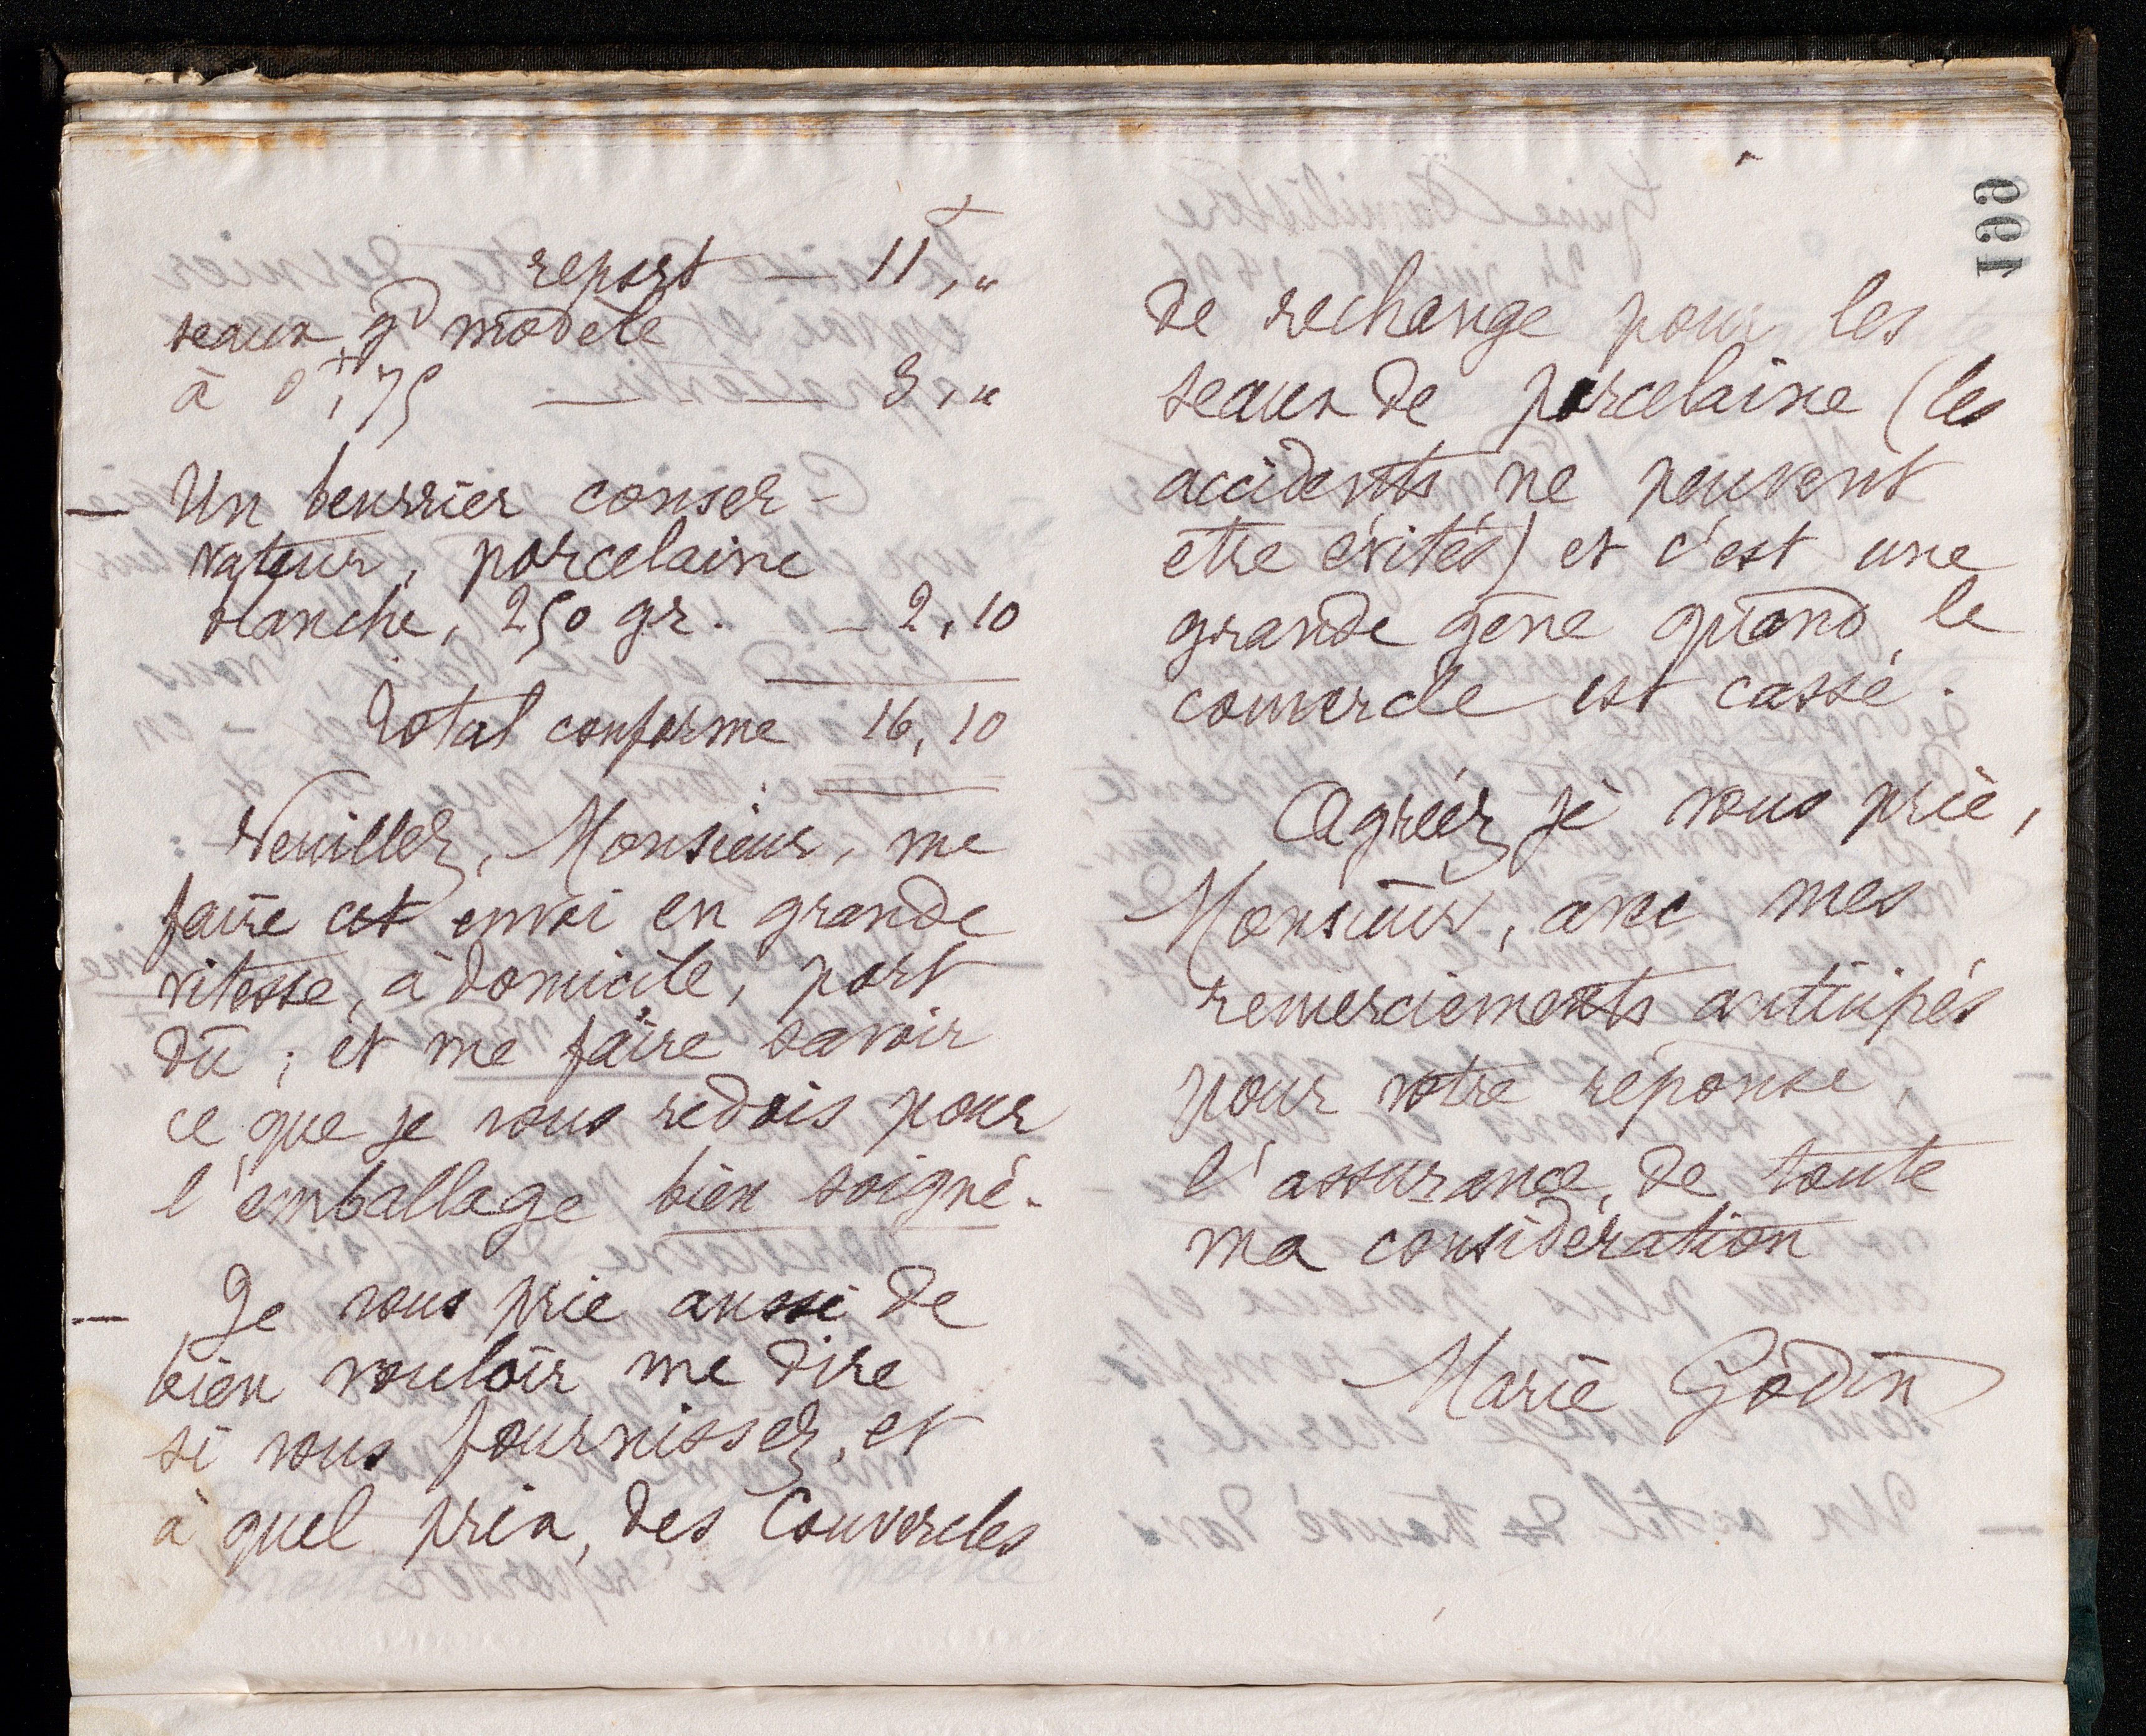 report — 11f,"
seaux gd modèle
à 0f,75 — — 3,"
— Un beurrier conser-
vateur, porcelaine
blanche, 250 gr. — 2,10
Total conforme 16,10
Veuillez, Monsieur, me
faire cet envoi en grande
vitesse, à domicile, port
dû ; et me faire savoir
ce que je vous redois pour
l'emballage bien soigné.
— Je vous prie aussi de
bien vouloir me dire
si vous fournissez, et
à quel prix, des Couvercles
199
de rechange pour les
seaux de porcelaine (les
accidents ne peuvent
etre évités) et c'est une
grande gêne quand le
couvercle est cassé.
Agréez je vous prie,
Monsieur, avec mes
remerciements anticipés
pour votre réponse,
l'assurance de toute
ma considération
Marie Godin